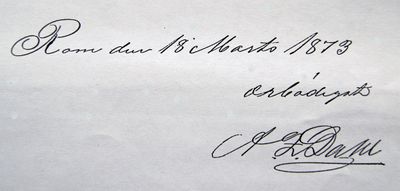 Rom den 18 Marts 1873
ærbødigst
A Z. Dahl